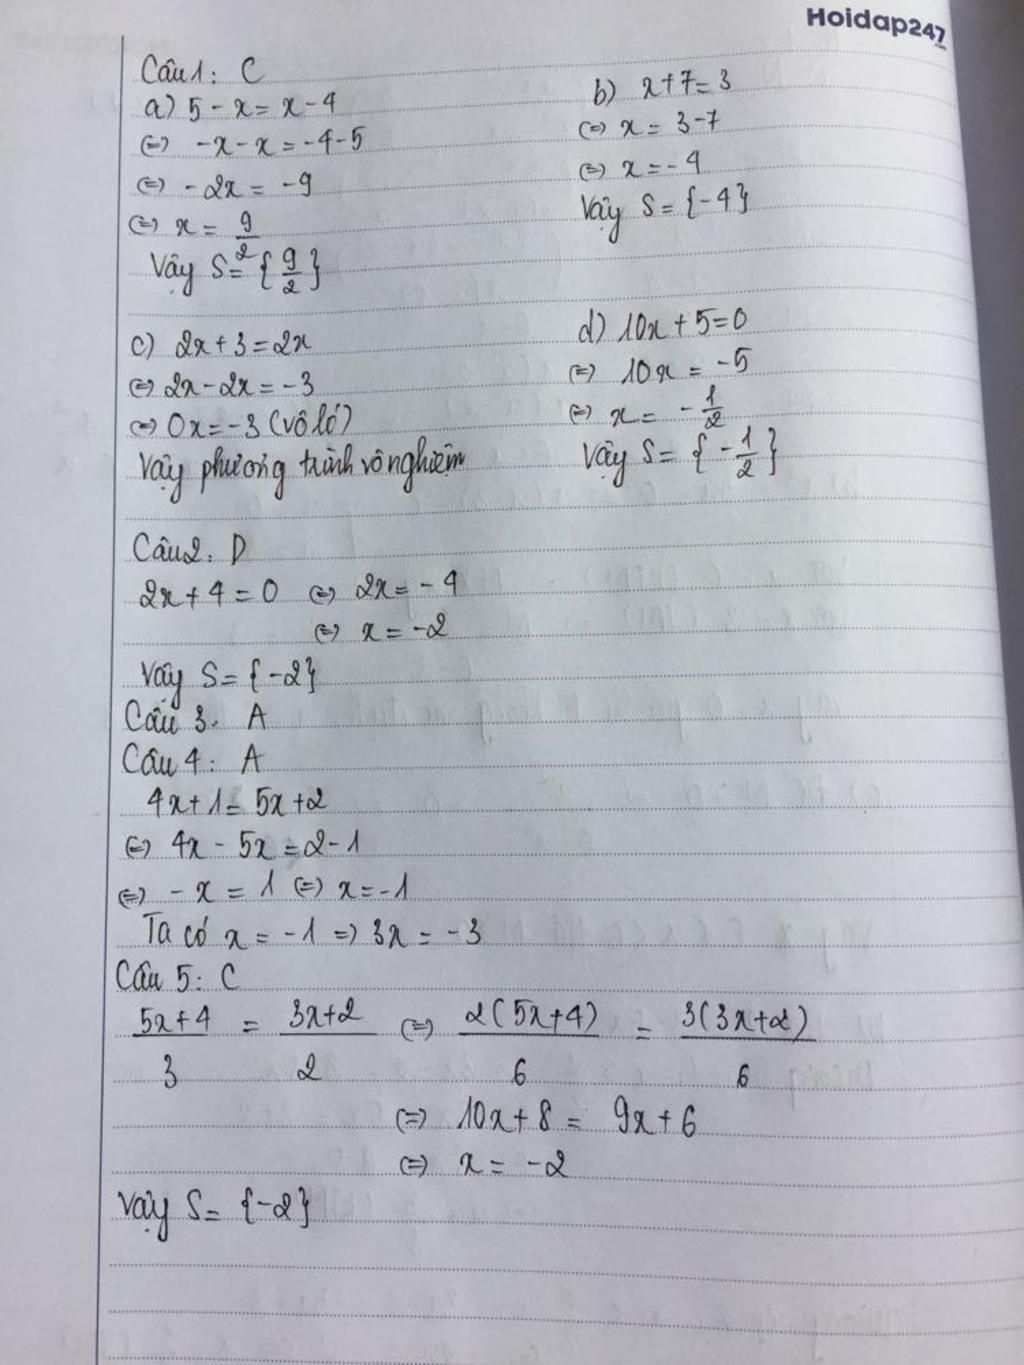 Hoidap247
.com
Câu 1: C
a) 5 - x = x - 4
(=) -x - x = -4 - 5
(=) - 2x = -9
(=) x = 9/2
Vậy S = { 9/2 }
b) x + 7 = 3
(=) x = 3 - 7
(=) x = - 4
Vậy S = {-4}
c) 2x + 3 = 2x
(=) 2x - 2x = -3
(=) 0x = -3 (vô lí)
Vậy phương trình vô nghiệm
d) 10x + 5 = 0
(=) 10x = -5
(=) x = - 1/2
Vậy S = { - 1/2 }
Câu 2: D
2x + 4 = 0 (=) 2x = - 4
(=) x = -2
Vậy S = {-2}
Câu 3. A
Câu 4: A
4x + 1 = 5x + 2
(=) 4x - 5x = 2 - 1
(=) - x = 1 (=) x = -1
Ta có x = -1 => 3x = -3
Câu 5: C
5x+4/3 = 3x+2/2 (=) 2(5x+4)/6 = 3(3x+2)/6
(=) 10x + 8 = 9x + 6
(=) x = -2
Vậy S = {-2}